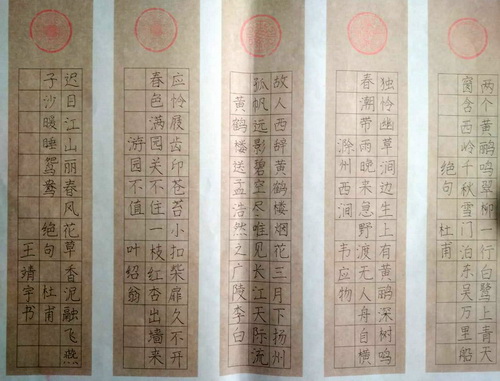 两个黄鹂鸣翠柳一行白鹭上青天
窗含西岭千秋雪门泊东吴万里船
绝句 杜甫
独怜幽草涧边生上有黄鹂深树鸣
春潮带雨晚来急野渡无人舟自横
滁州西涧 韦应物
故人西辞黄鹤楼烟花三月下扬州
孤帆远影碧空尽唯见长江天际流
黄鹤楼送孟浩然之广陵李白
应怜屐齿印苍苔小扣柴扉久不开
春色满园关不住一枝红杏出墙来
游园不值 叶绍翁
迟日江山丽春风花草香泥融飞燕
子沙暖睡鸳鸯 绝句 杜甫
王靖宇书